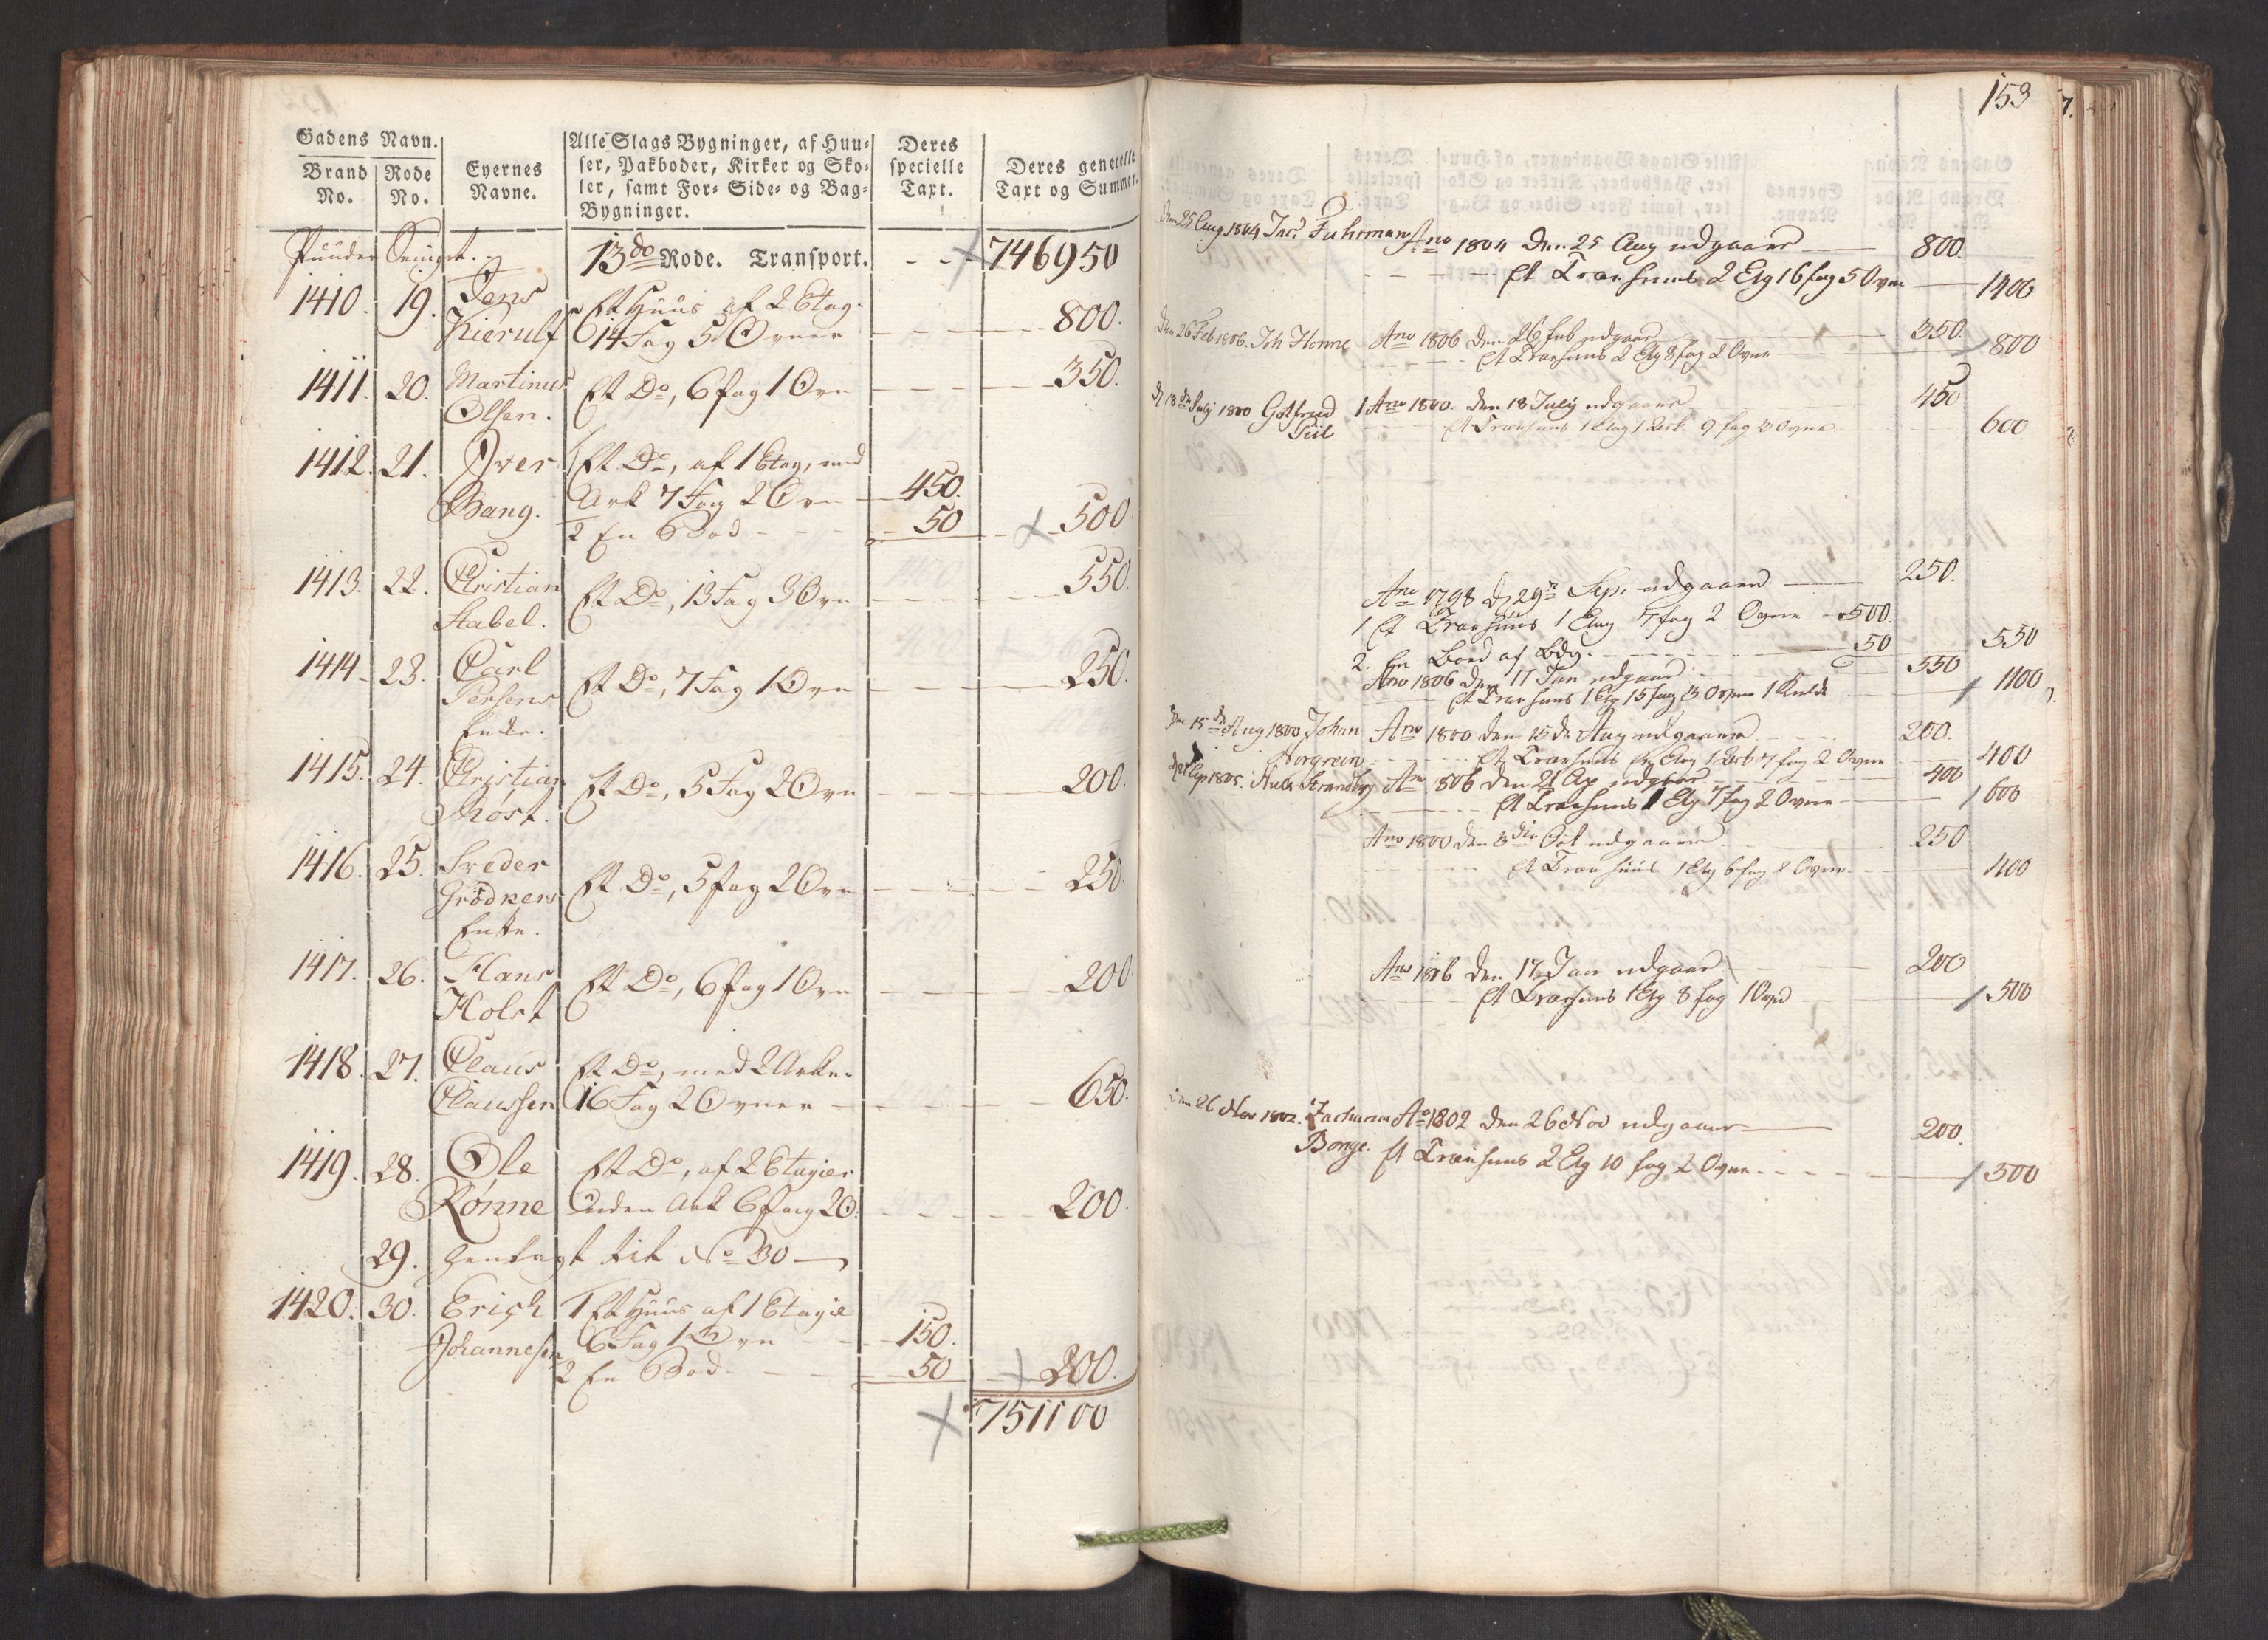 Gadens Navn.
Brand No. Rode No. Eyernes Navne. Alle Slags Bygninger, af Huu-
ser, Pakboder, Kirker og Sko-
ler, samt For- Side- og Bag-
Bygninger. Deres specielle Taxt. Deres generelle Taxt og Summer.
13de Rode. Transport. 746950
1410. 19. Jens Et Huus af 2 Etag.
Kierulf 14 Fag 5 Ovner 800.
1411. 20. Martinus Et Do, 6 fag 1 Ovn 350.
Olsen.
1412. 21. Iver Et Do, af 1 Etag, med
Bang. Ark 7 Fag 2 Ovn 450.
2 En Bod 50 500
1413. 22. Christian Et Do, 13 Fag 3 Ovn 550.
Stabel.
1414 23. Carl Et Do, 7 Fag 1 Ovn 250.
Persens
Enke.
1415. 24. Christian Et Do, 5 Fag 2 Ovn 200.
Röst.
1416. 25. Freder Et Do, 5 fag 2 Ovn 250.
Grödners
Enke.
1417. 26. Hans Et Do, 6 fag 1 Ovn 200
Holst
1418. 27. Claus Et Do, med 2 Arker
Claussen 16 Fag 2 Ovner 650.
1419. 28. Ole Et Do, af 2 Etagier
Rönne uden Ark 6 fag 2 O. 200.
29. henlagt til No 30
1420. 30. Erich 1 Et Huus af 1 Etagie
Johannesen 6 Fag 1 Ovn 150.
2 En Bod 50 200.
751100
153
Den 25 Aug 1804 Jac. Fuhrman Ano 1804 den 25 Aug udgaaer 800.
Et Træehuus 2 Etg 16 fag 5 Ovne 1400
Den 26 Feb 1806. Joh Honne Ano 1806 den 26 Feb udgaaer 350.
Et Træehuus 2 Etg 8 fag 2 Ovne 800
D. 18de July 1800 Gotfried 1 Ano 1800. den 18 July udgaaer 450
Piil Et Træehuus 1 Etag 1 Ark. 9 fag 3 Ovne 600
Ano 1798 d. 29de Sep. udgaaer 250.
1 Et Træehuus 1 Etag 7 fag 2 Ovne 500.
2. En Boed af Bdg. 50 550
Ano 1806 den 17 Jan udgaaer 550
Et Træehuus 1 Etg 15 fag 3 Ovne 1100
Den 15de Aug 1800 Johan Ano 1800 den 15de Aug udgaaer 200.
Norgrein Et Træehuus En Etag 1 Ark 7 fag 2 Ovne 400
Ano 1806 den 21 Ap udgaaer 400
Et Træehuus 1 Etg 7 fag 2 Ovne 600
Ano 1800 den 3die Oct udgaaer 250
Et Træehuus 1 Etg 6 fag 2 Ovne 400
Ano 1806 den 17 Jan udgaaer 200
Et Træehuus 1 Etg 8 fag 1 Ovn 500
Den 26 Nov 1802. Zacharias Ao 1802 den 26 Nov udgaaer 200.
Bonge. Et Træehuus 2 Etg 10 fag 2 Ovne 500